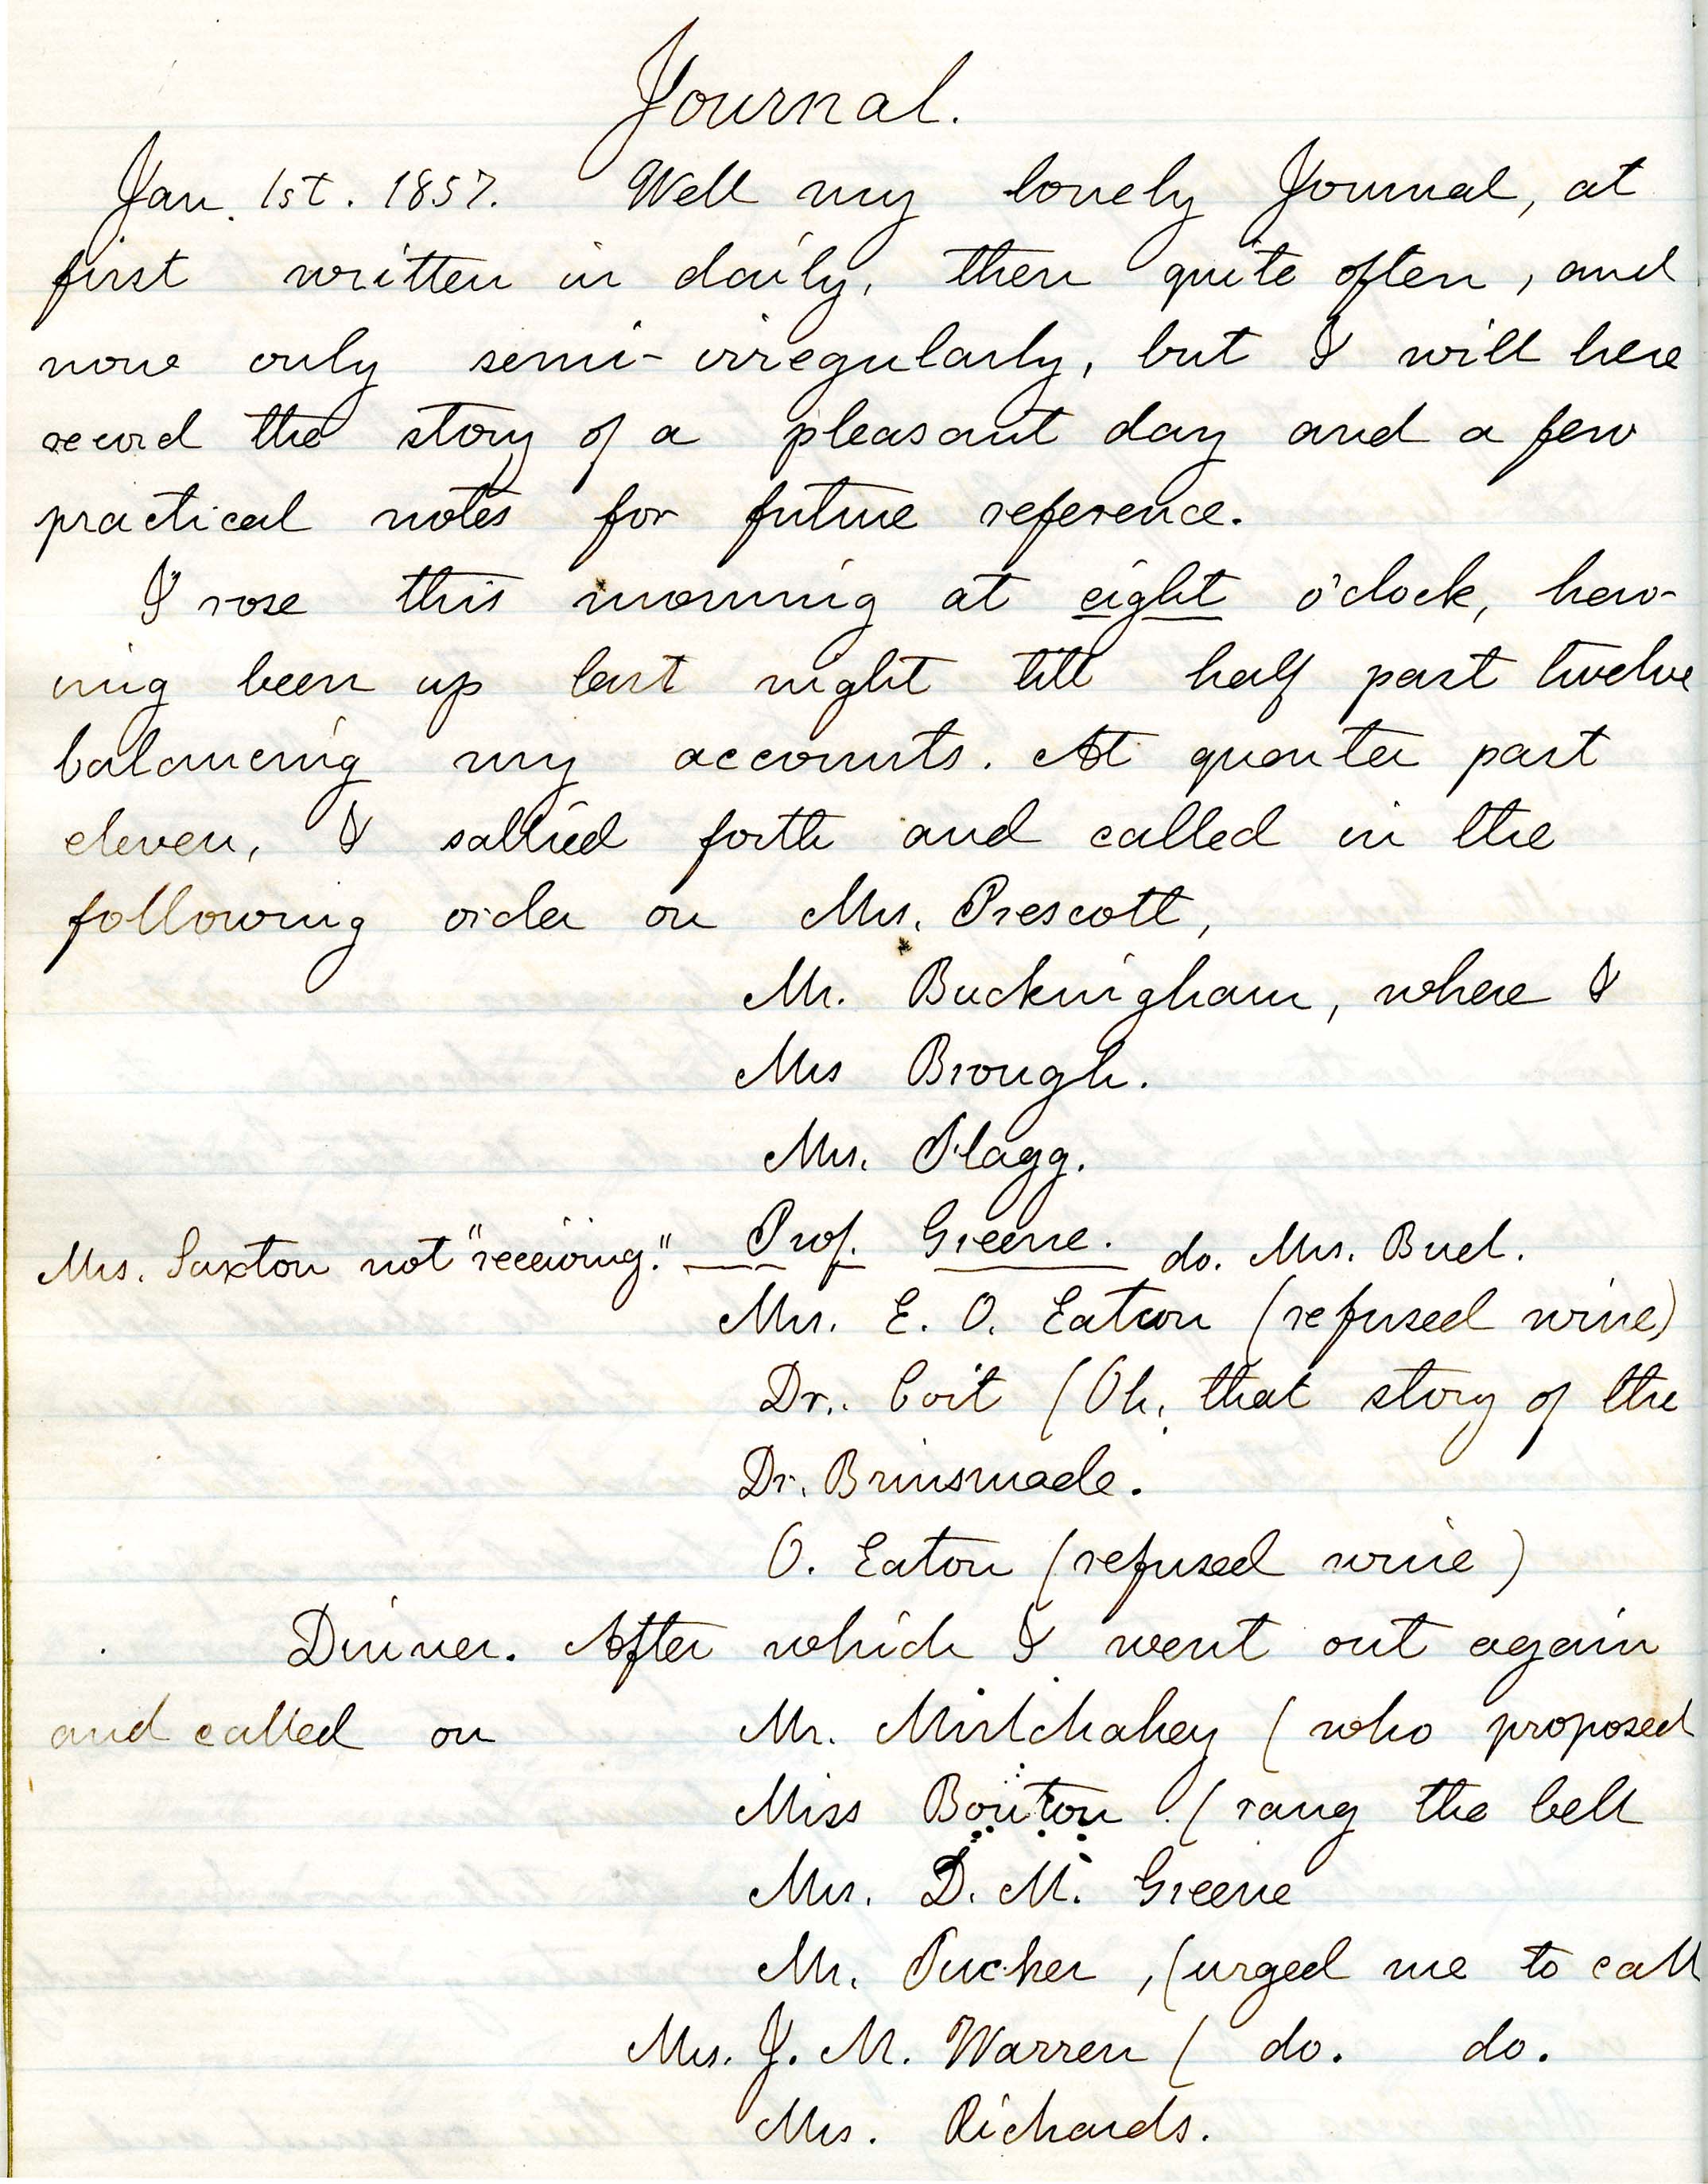 Journal.
Jan. 1st. 1857. Well my lonely Journal, at
first written in daily, then quite often, and
now only semi-irregularly, but I will here
record the story of a pleasant day and a few
practical notes for future reference.
I rose this morning at eight o'clock, hav-
ing been up last night till half past twelve
balancing my accounts. At quarter past
eleven, I sallied forth and called in the
following order on Mrs. Prescott,
Mr. Buckingham, where I
Mrs Brough.
Mrs. Flagg.
Mrs. Saxton not "receiving." Prof. Greene. do. Mrs. Buel.
Mrs. E. O. Eaton (refused wine)
Dr. Coit (Oh, that story of the
Dr. Brinsmade.
O. Eaton (refused wine)
Dinner. After which I went out again
and called on Mr. (who proposed
Miss Bouton (rang the bell
Mrs. D. M. Greene
Mr. Tucker, (urged me to call
Mrs. J. M. Warren ( do. do.
Mrs. Richards.